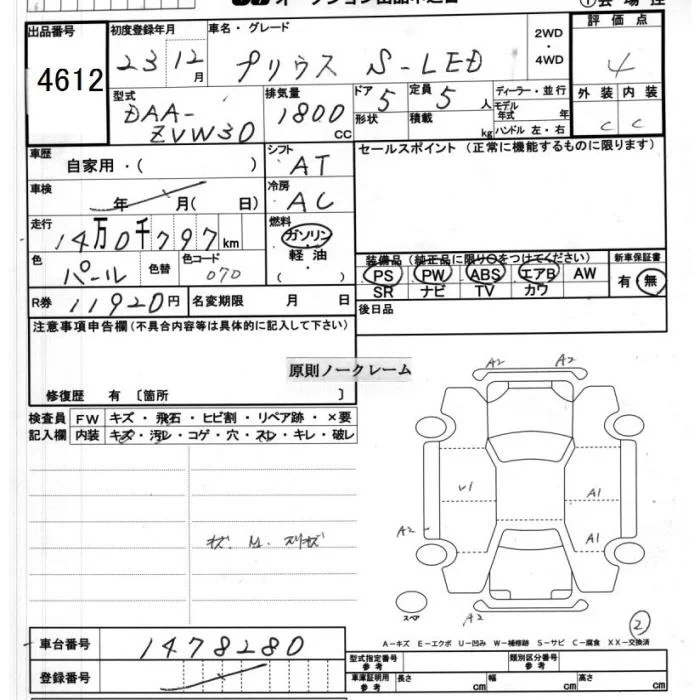 出品番号
4612
初度登録年月
23 12 月
車名・グレード
プリウス S-LED
2WD
・
4WD
評価点
4
外装 内装
C C
型式
DAA-
ZVW30
排気量
1800
cc
ドア 5
形状
定員 5 人
積載 kg
ディーラー・並行
モデル
年式 年
ハンドル 左・右
車歴
自家用・( )
シフト
AT
車検
年 月( 日)
冷房
AC
走行
14万0千797km
燃料
ガソリン
軽油
( )
色
パール
色替
色コード
070
R券 11920円
名変期限 月 日
セールスポイント (正常に機能するものに限ります)
装備品 (純正品に限り○をつけてください)
PS PW ABS エアB AW
SR ナビ TV カワ
新車保証書
有・無
後日品
注意事項申告欄(不具合内容等は具体的に記入して下さい)
原則ノークレーム
修復歴 有 〔箇所 〕
検査員
記入欄
FW キズ・飛石・ヒビ割・リペア跡・×要
内装 キズ・汚レ・コゲ・穴・スレ・キレ・破レ
A2 A2
U1
A1
A2
A1
スペア
A2
②
A-キズ E-エクボ U-凹み W-補修跡 S-サビ C-腐食 XX-交換済
車台番号
1478280
登録番号
型式指定番号
参考
類別区分番号
参考
車庫証明用
参考
長さ cm
幅 cm
高さ cm